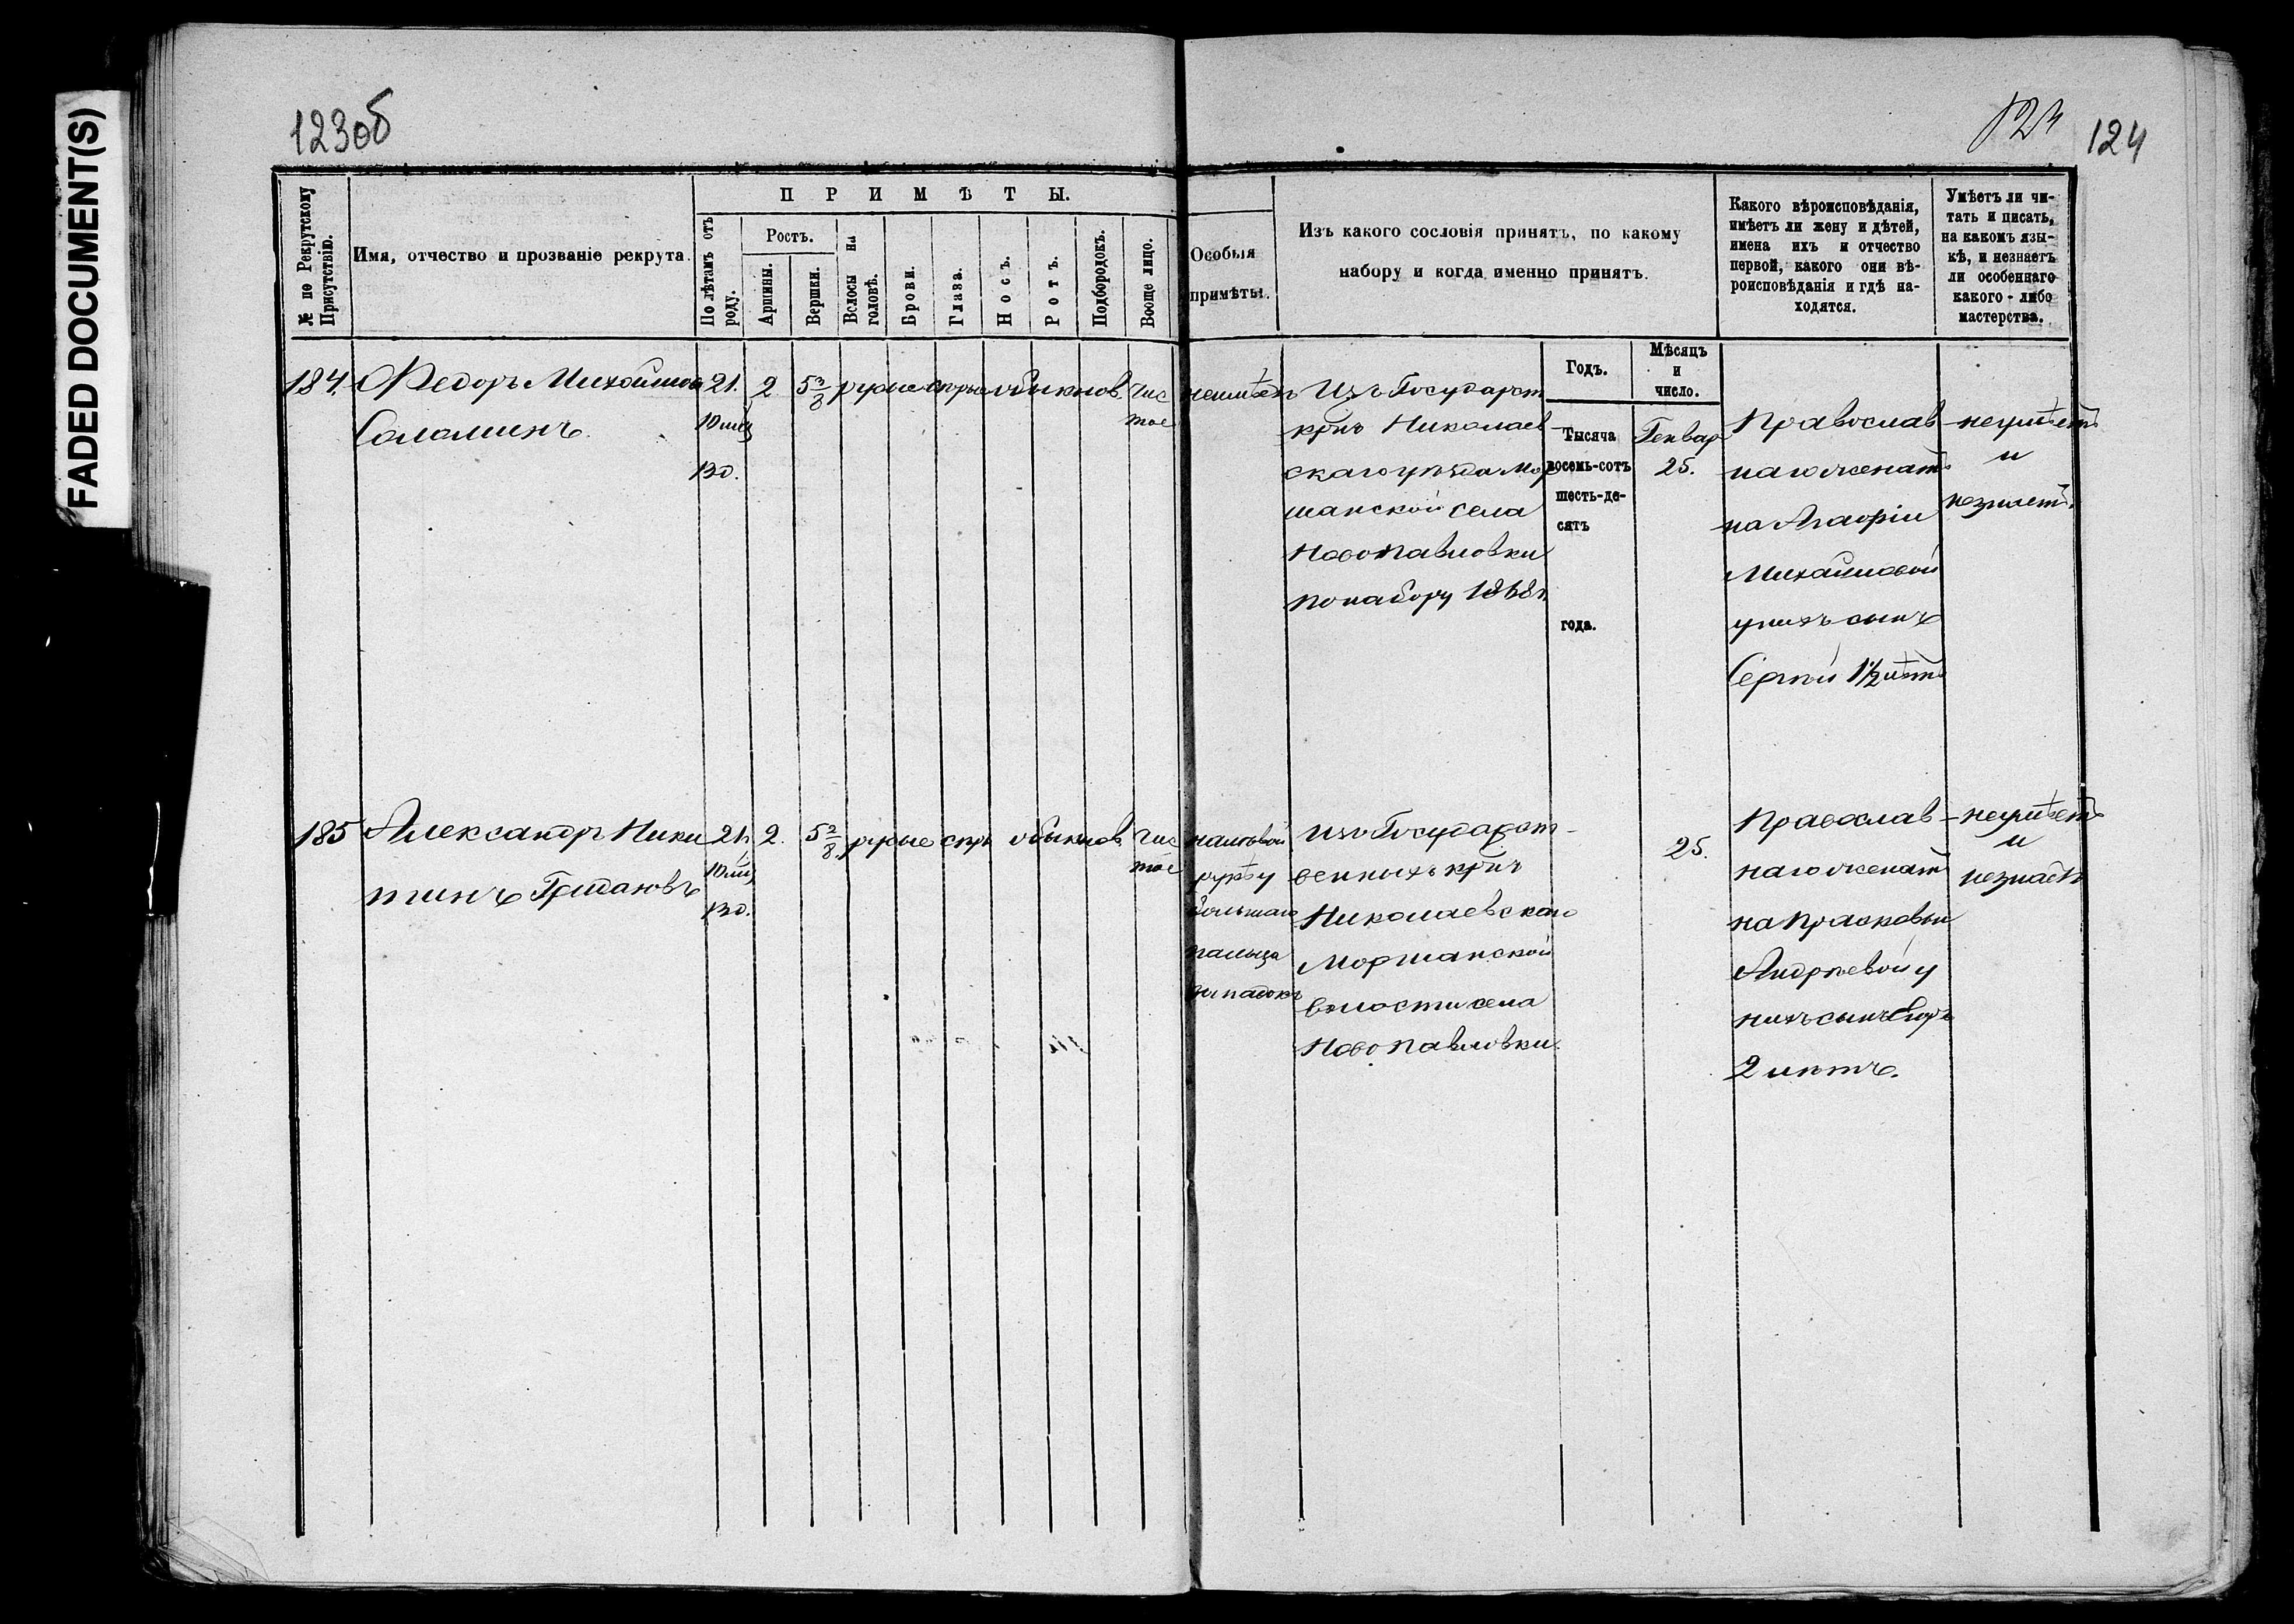 FADED DOCUMENT(S)
123об
124
№ по Рекрутскому Присутствію.
Имя, отчество и прозваніе рекрута.
ПРИМѢТЫ.
По лѣтамъ отъ роду.
Ростъ.
Аршины.
Вершки.
Волосы на головѣ.
Брови.
Глаза.
Носъ.
Ротъ.
Подбородокъ.
Вооще лицо.
Особыя
примѣты.
Изъ какого сословія принятъ, по какому
набору и когда именно принятъ.
Какого вѣроисповѣданія,
имѣетъ ли жену и дѣтей,
имена ихъ и отчество
первой, какого они вѣ-
роисповѣданія и гдѣ на-
ходятся.
Умѣетъ ли чи-
тать и писать,
на какомъ язы-
кѣ, и незнаетъ
ли особеннаго
какого-либо
мастерства.
Годъ.
Мѣсяцъ
и
число.
Тысяча
восемь-сотъ
шесть-де-
сятъ
года.
184.
Федоръ Михайловъ
Соломинъ.
21.
10 мѣц
13 д.
2
5 3/8
русые
сѣрые
обыкнов.
чис
тое
неимѣетъ
Изъ Государст
крнъ Николаев
скаго уѣзда Мор
шанской села
Новопавловки
по набору 1868 г.
Генвар
25.
Православ
наго женатъ
на
Михайловой
у нихъ сынъ
Сергѣй 1½ лѣтъ
неумѣетъ
и
незнаетъ.
185
Александръ Ники
тинъ
21.
10 мц
13 д.
2.
5 2/8
русые
сѣры
обыкнов.
чис
тое
на лѣвой
рукѣ у
большаго
пальца
Изъ Государст-
венныхъ крнъ
Николаевскаго
Моршанской
волости села
Новопавловки.
25.
Православ-
наго женатъ
на Прасковьи
Андрѣевой у
нихъ сынъ
2 лѣтъ.
неумѣетъ
и
незнаетъ